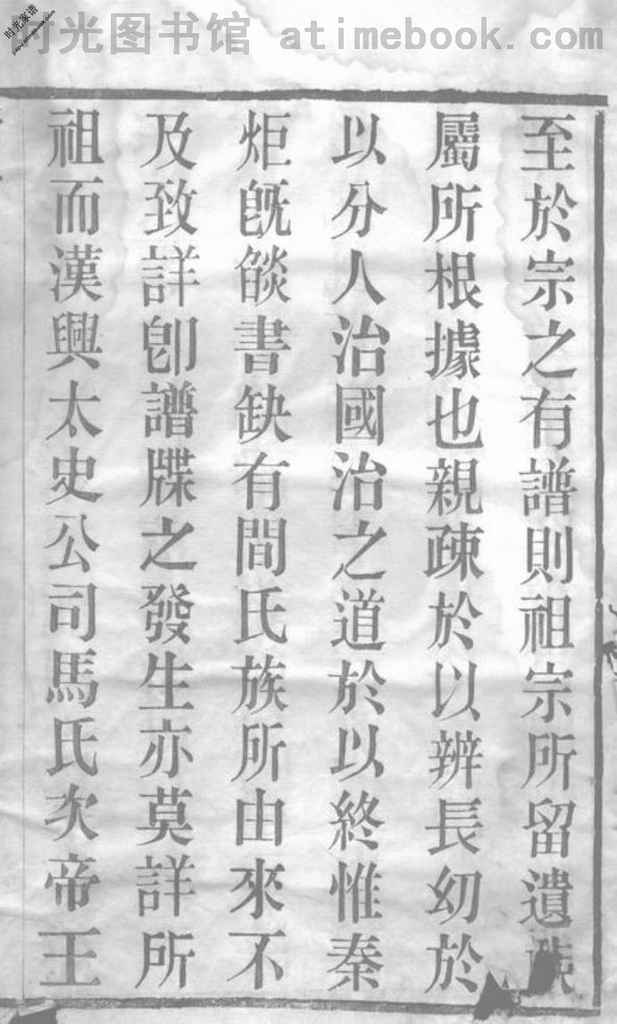 时光图书馆 atimebook.com
至於宗之有譜則祖宗所留遺
屬所根據也親疎於以辨長幼於
以分人治國治之道於以終惟秦
炬旣燄書缺有間氏族所由來不
及致詳卽譜牒之發生亦莫詳所
祖而漢興太史公司馬氏次帝王